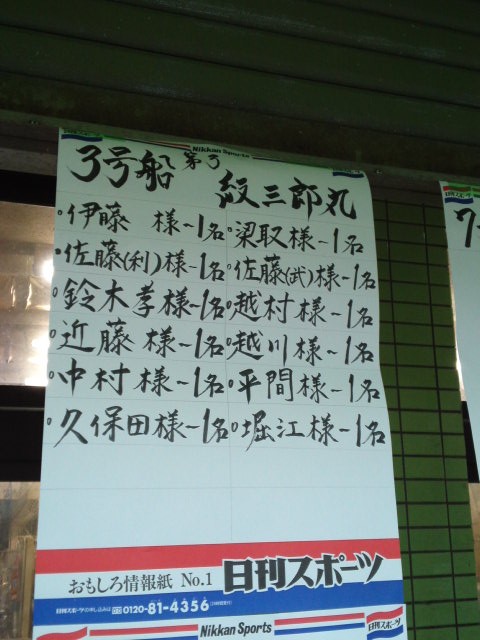 Nikkan Sports
3号船 第3 紋三郎丸
伊藤 様~1名 梁取様~1名
佐藤(利)様~1名 佐藤(武)様~1名
鈴木孝様~1名 越村様~1名
近藤様~1名 越川様~1名
中村様~1名 平間様~1名
久保田様~1名 堀江様~1名
おもしろ情報紙 No.1 日刊スポーツ
0120-81-4356
Nikkan Sports
日刊スポーツ